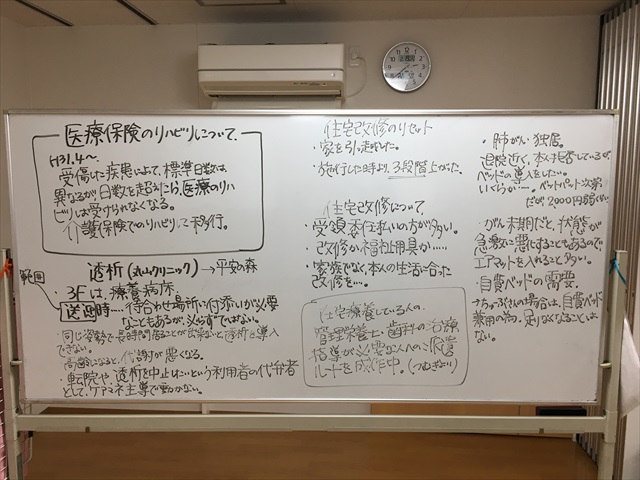 医療保険のリハビリについて
H31.4〜
受傷した疾患によって、標準日数は
異なるが、日数を超えたら、医療のリハ
ビリは受けられなくなる。
介護保険でのリハビリに移行。
透析(丸山クリニック)→平安の森
範囲
3Fは、療養病床
送迎時…待合わせ場所に付添いが必要
なこともあるが、必らずではない。
・同じ姿勢で長時間居ることが出来ないと、透析は導入
できない。
高齢になると、代謝が悪くなる。
・転院や、透析を中止したいという利用者の代弁者
として、ケアマネ主導で動かない。
住宅改修のリセット
・家を引っ越した。
・施行した時より、3段階上がった。
住宅改修について
・受領委任払いの方が多い。
・改修か福祉用具か……
・家族でなく、本人の生活に合った
改修を…。
住宅療養している人の
管理栄養士・歯科の治療
指導が必要な人への
ルートを作成中。(つむぎより)
・肺がん・独居。
退院近くて、本人は拒否しているが、
ベッドの導入をしたい。
いくらか…
だが、2000円弱くらい。
・がん末期だと、状態が
急激に悪化することもあるので
エアマットを入れること多い。
・自費ベッドの需要
の場合は、自費ベッド
兼用の為、足りなくなることは
ない。